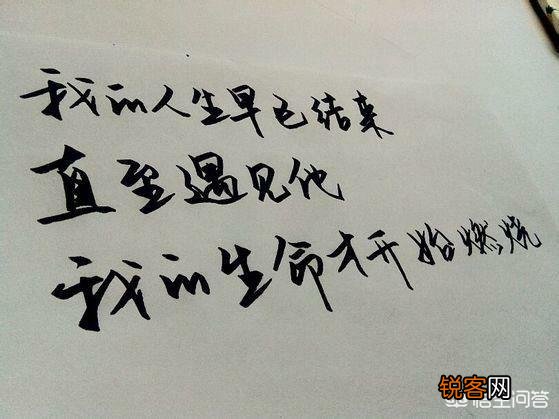 我的人生早已结束
直至遇见他
我的生命才开始燃烧
锐客网
悟空问答